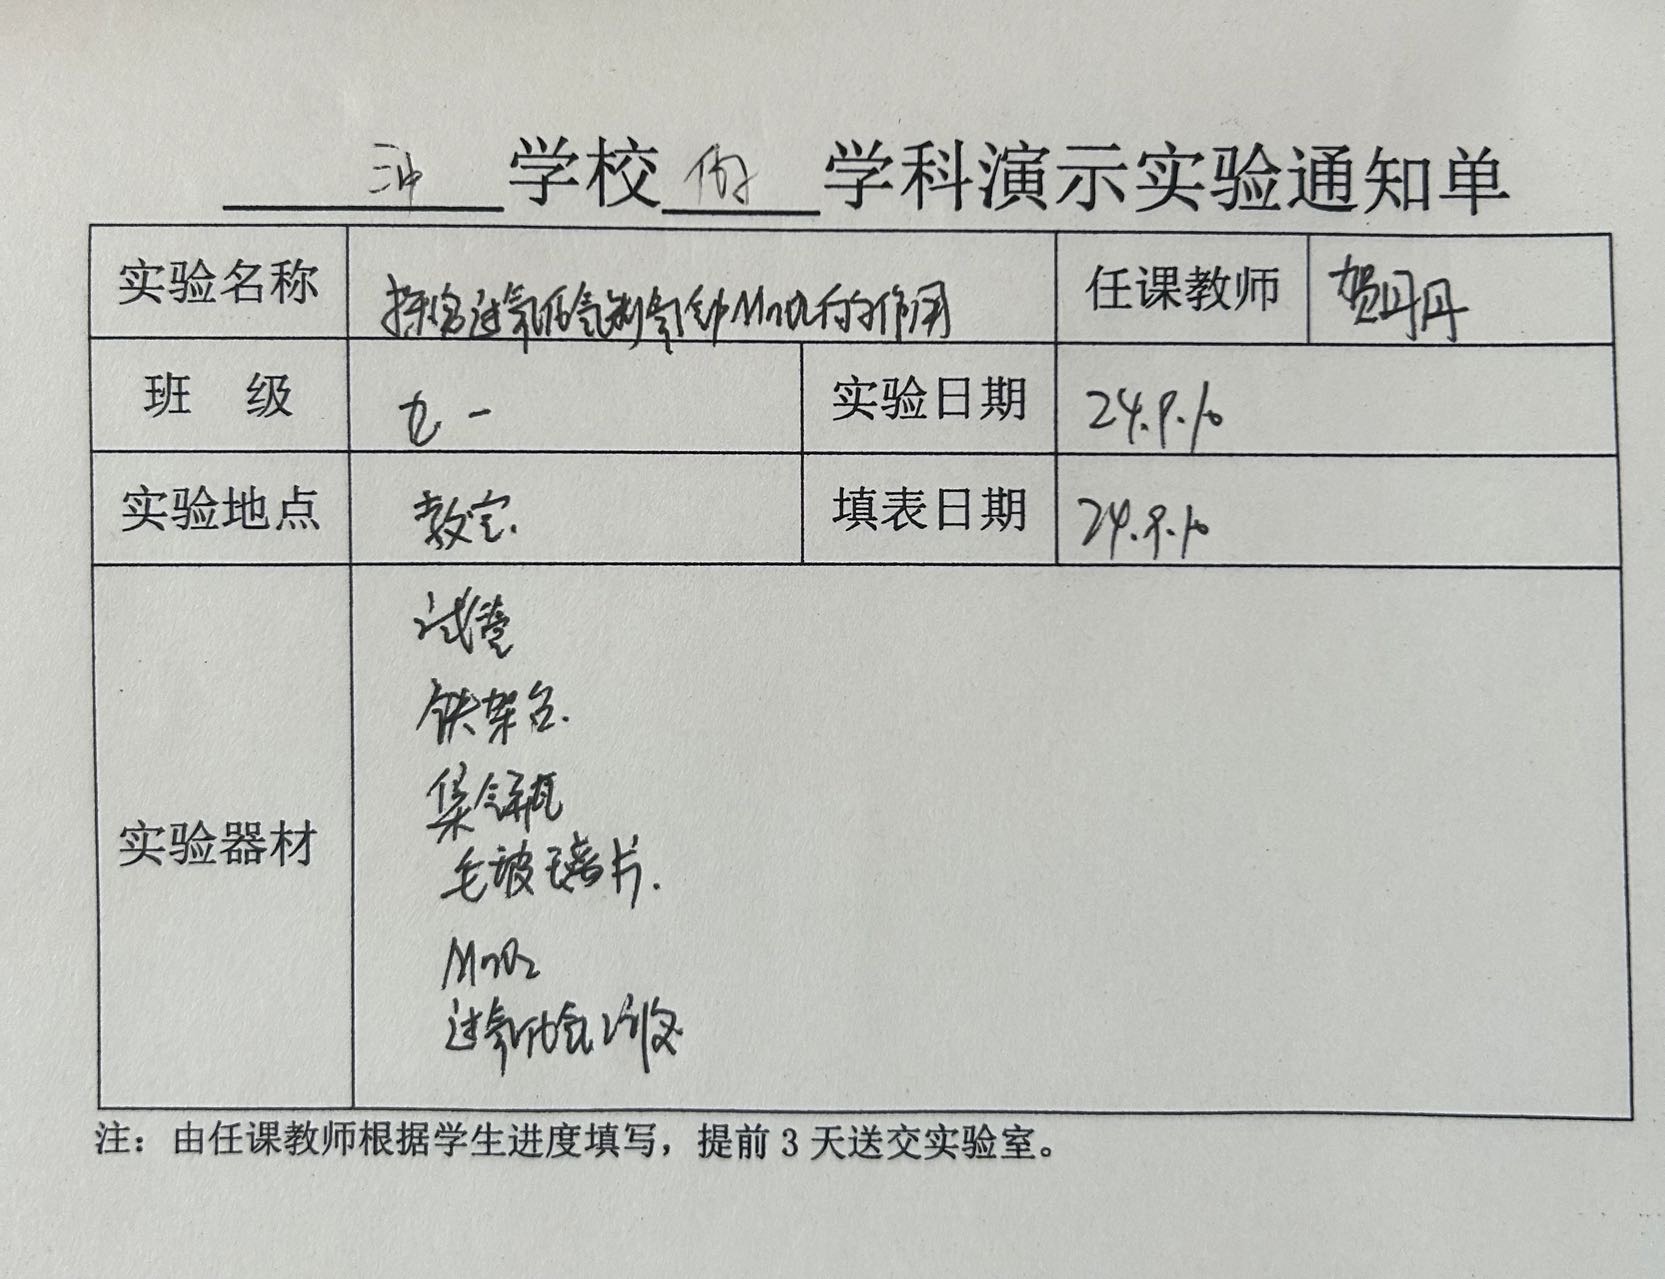 三中 学校 化学 学科演示实验通知单
实验名称 探究过氧化氢制氧气中MnO2的作用 任课教师 贺丹丹
班 级 九一 实验日期 24.9.10
实验地点 教室. 填表日期 24.9.10
实验器材
试管
铁架台.
集气瓶
毛玻璃片.
MnO2
过氧化氢溶液
注：由任课教师根据学生进度填写，提前 3 天送交实验室。